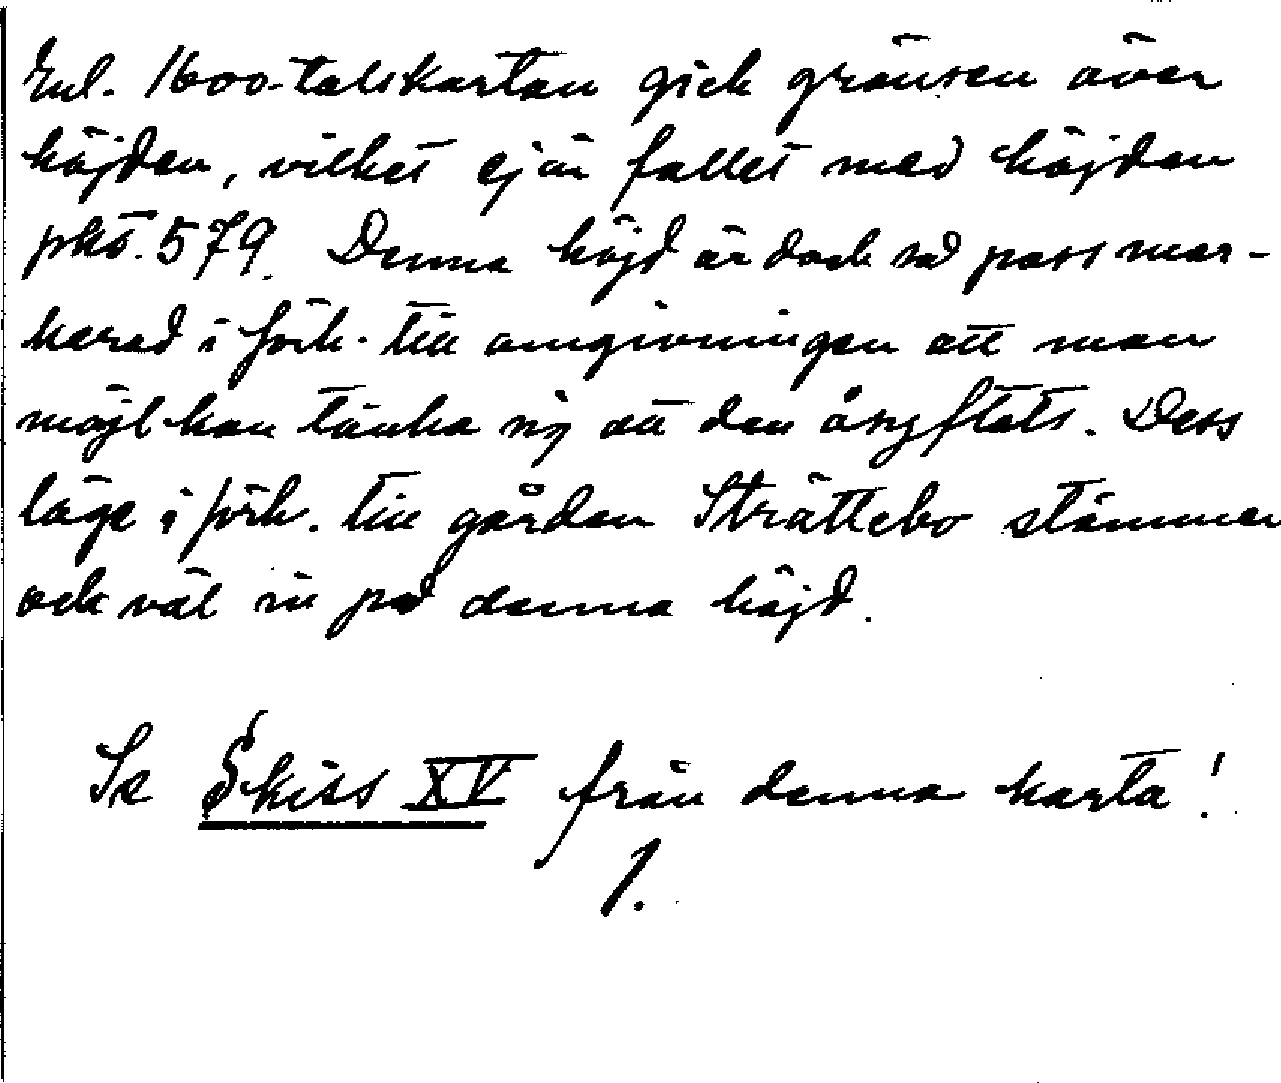 Enl. 1600-talskartan gick gränsen över
höjden, vilket ej är fallet med höjden
pkt. 579. Denna höjd är dock så pass mar-
kerad i förh. till omgivningen att man
möjl kan tänka sig att den åsyftats. Dess
läge i förh. till gården Strättebo stämmer
och väl in på denna höjd.
Se Skiss XV från denna karta!
1.